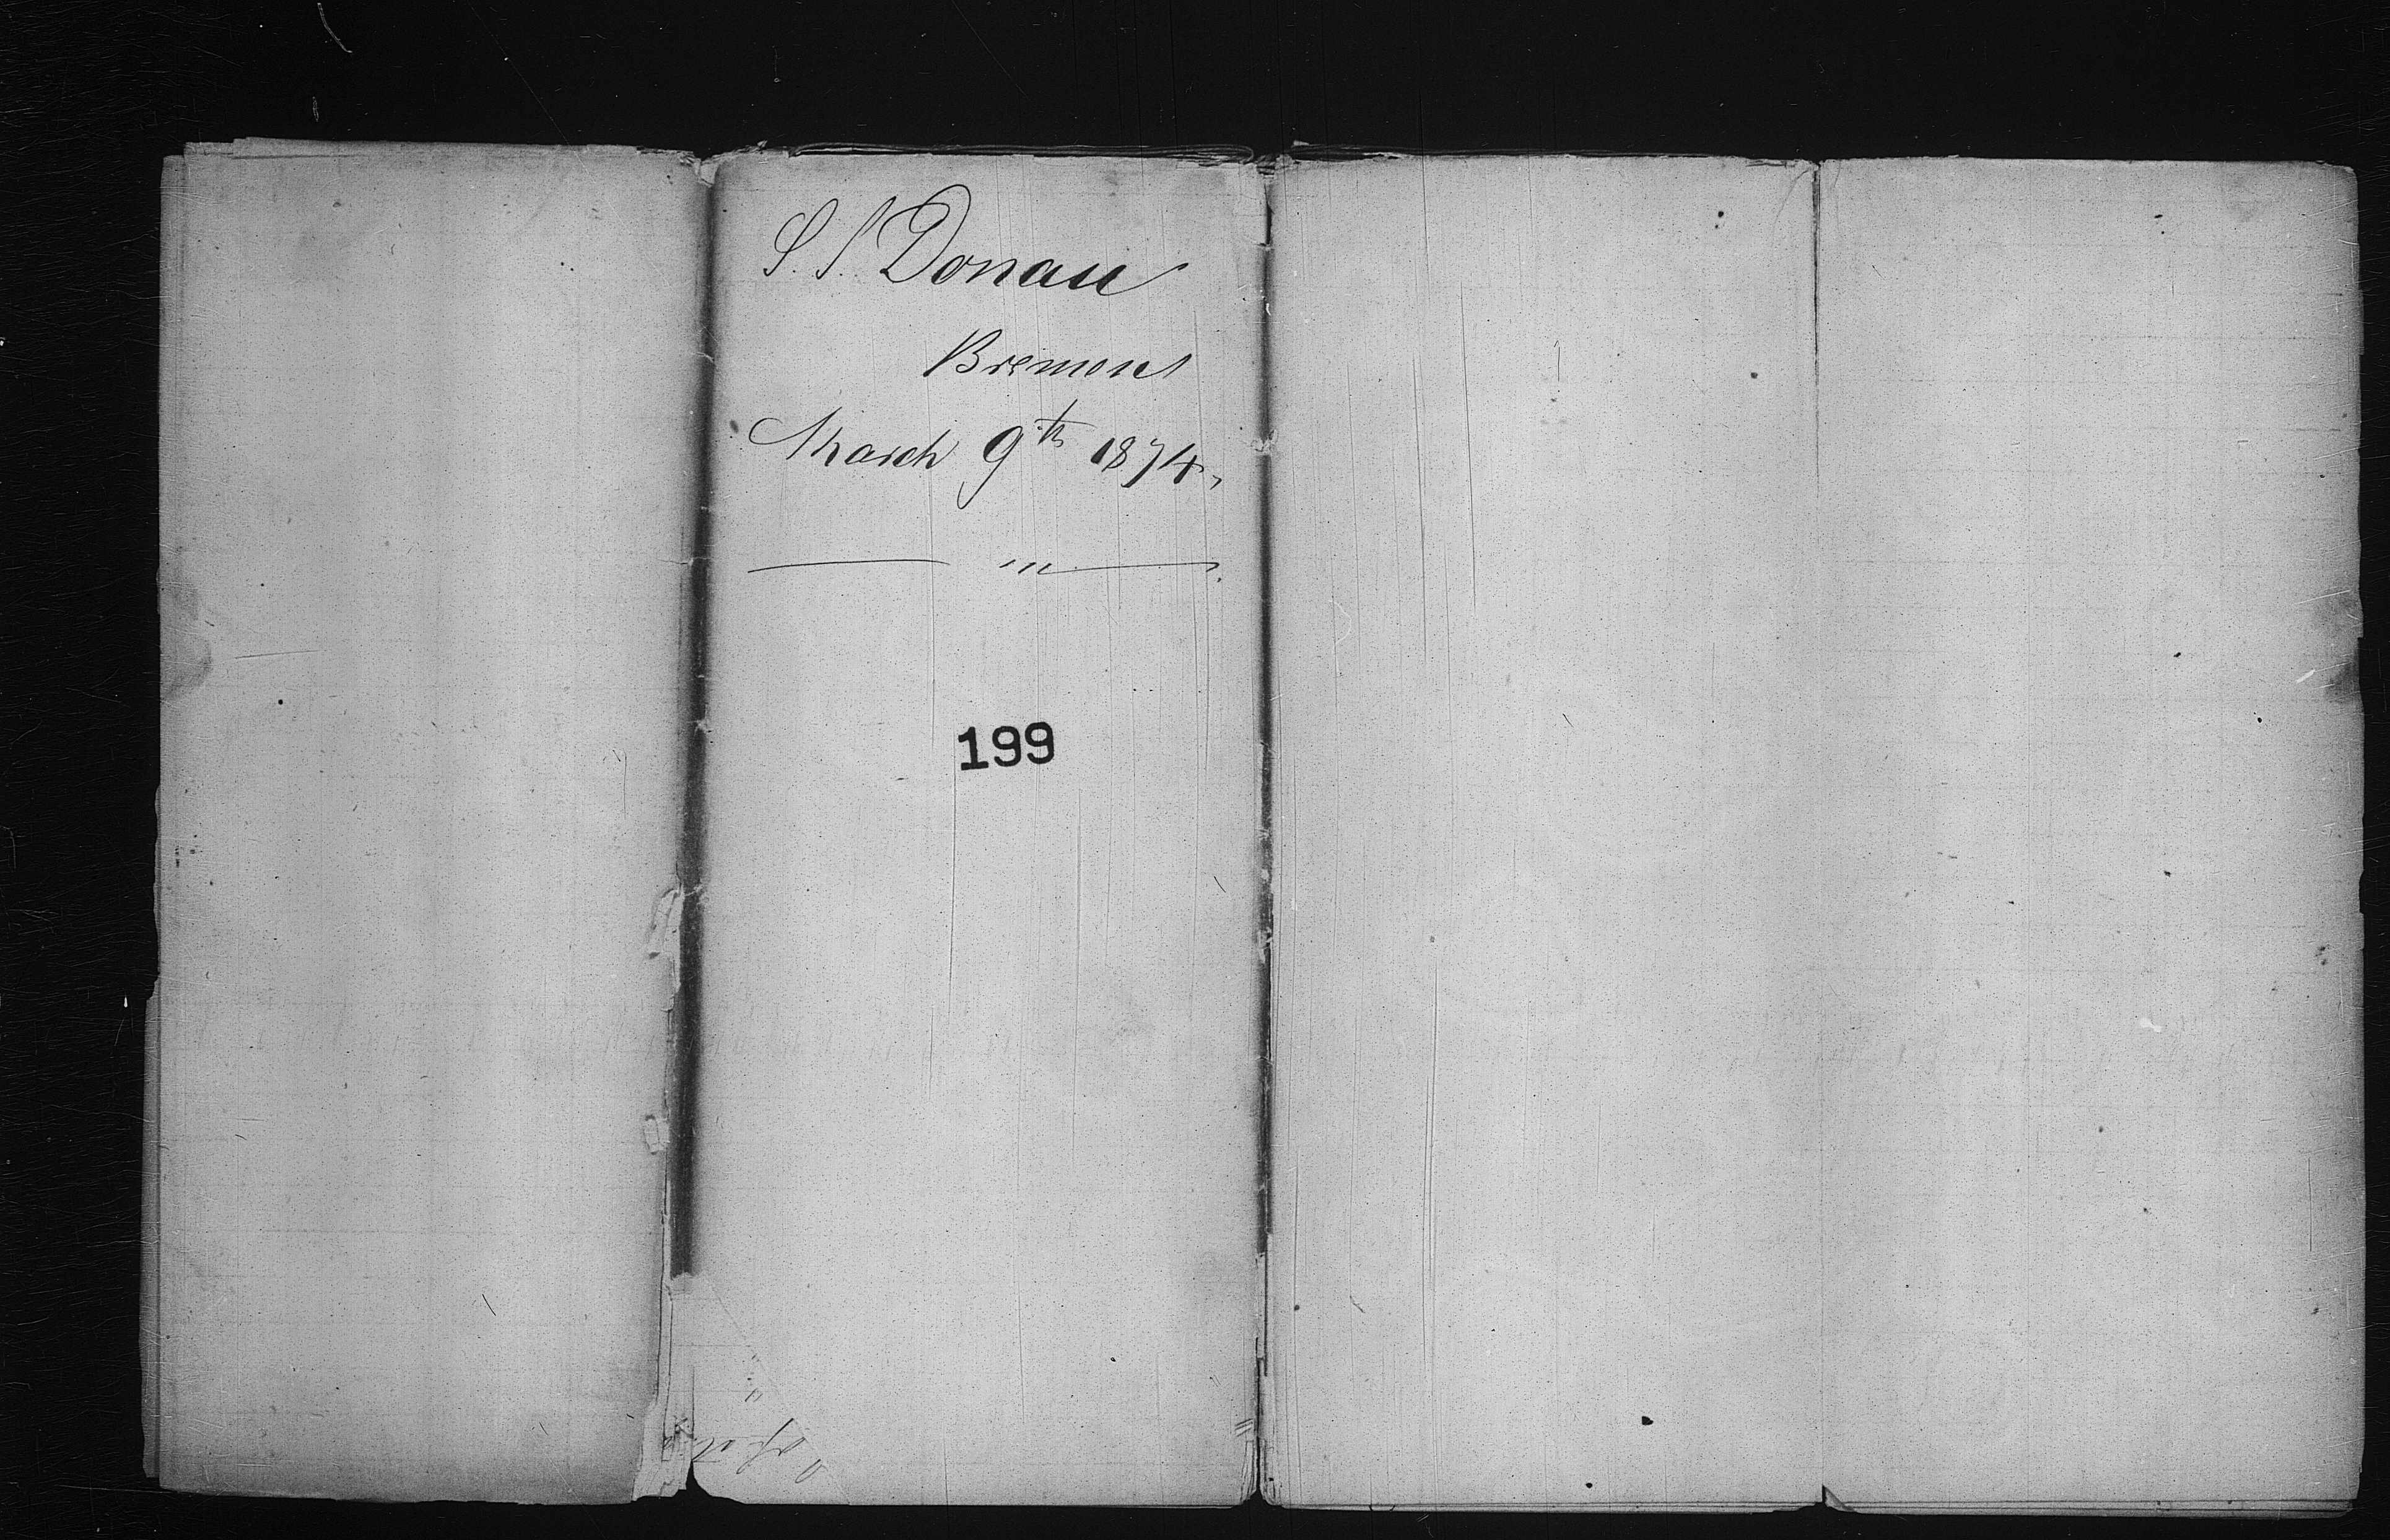 S. S. Donau
Bremen
March 9th 1874.
199